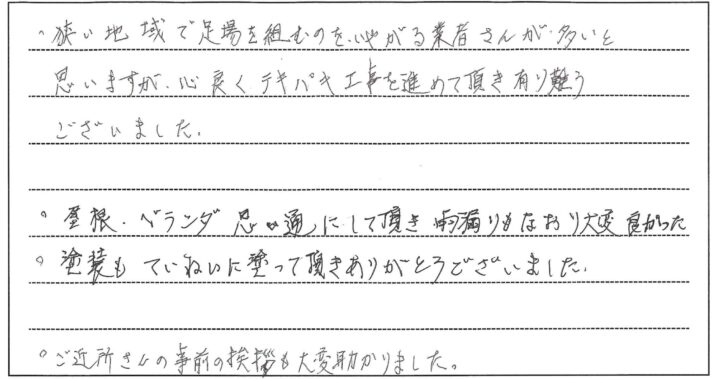 。狭い地域で足場を組むのを、いやがる業者さんが、多いと
思いますが、心良くテキパキ工事を進めて頂き有り難う
ございました。
。屋根・ベランダ 思い通りにして頂き 雨漏りもなおり大変良かった
。塗装も ていねいに塗って頂きありがとうございました。
。ご近所さんの事前の挨拶も大変助かりました。